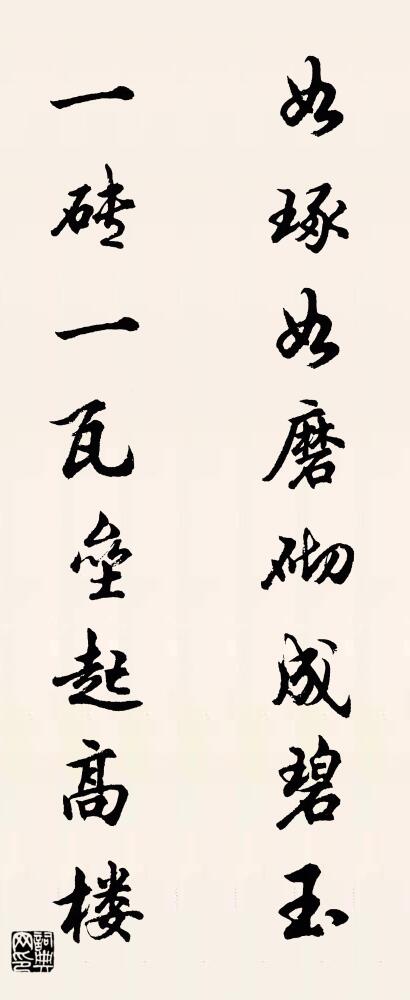 如琢如磨砌成碧玉
一砖一瓦垒起高楼
詞典網印